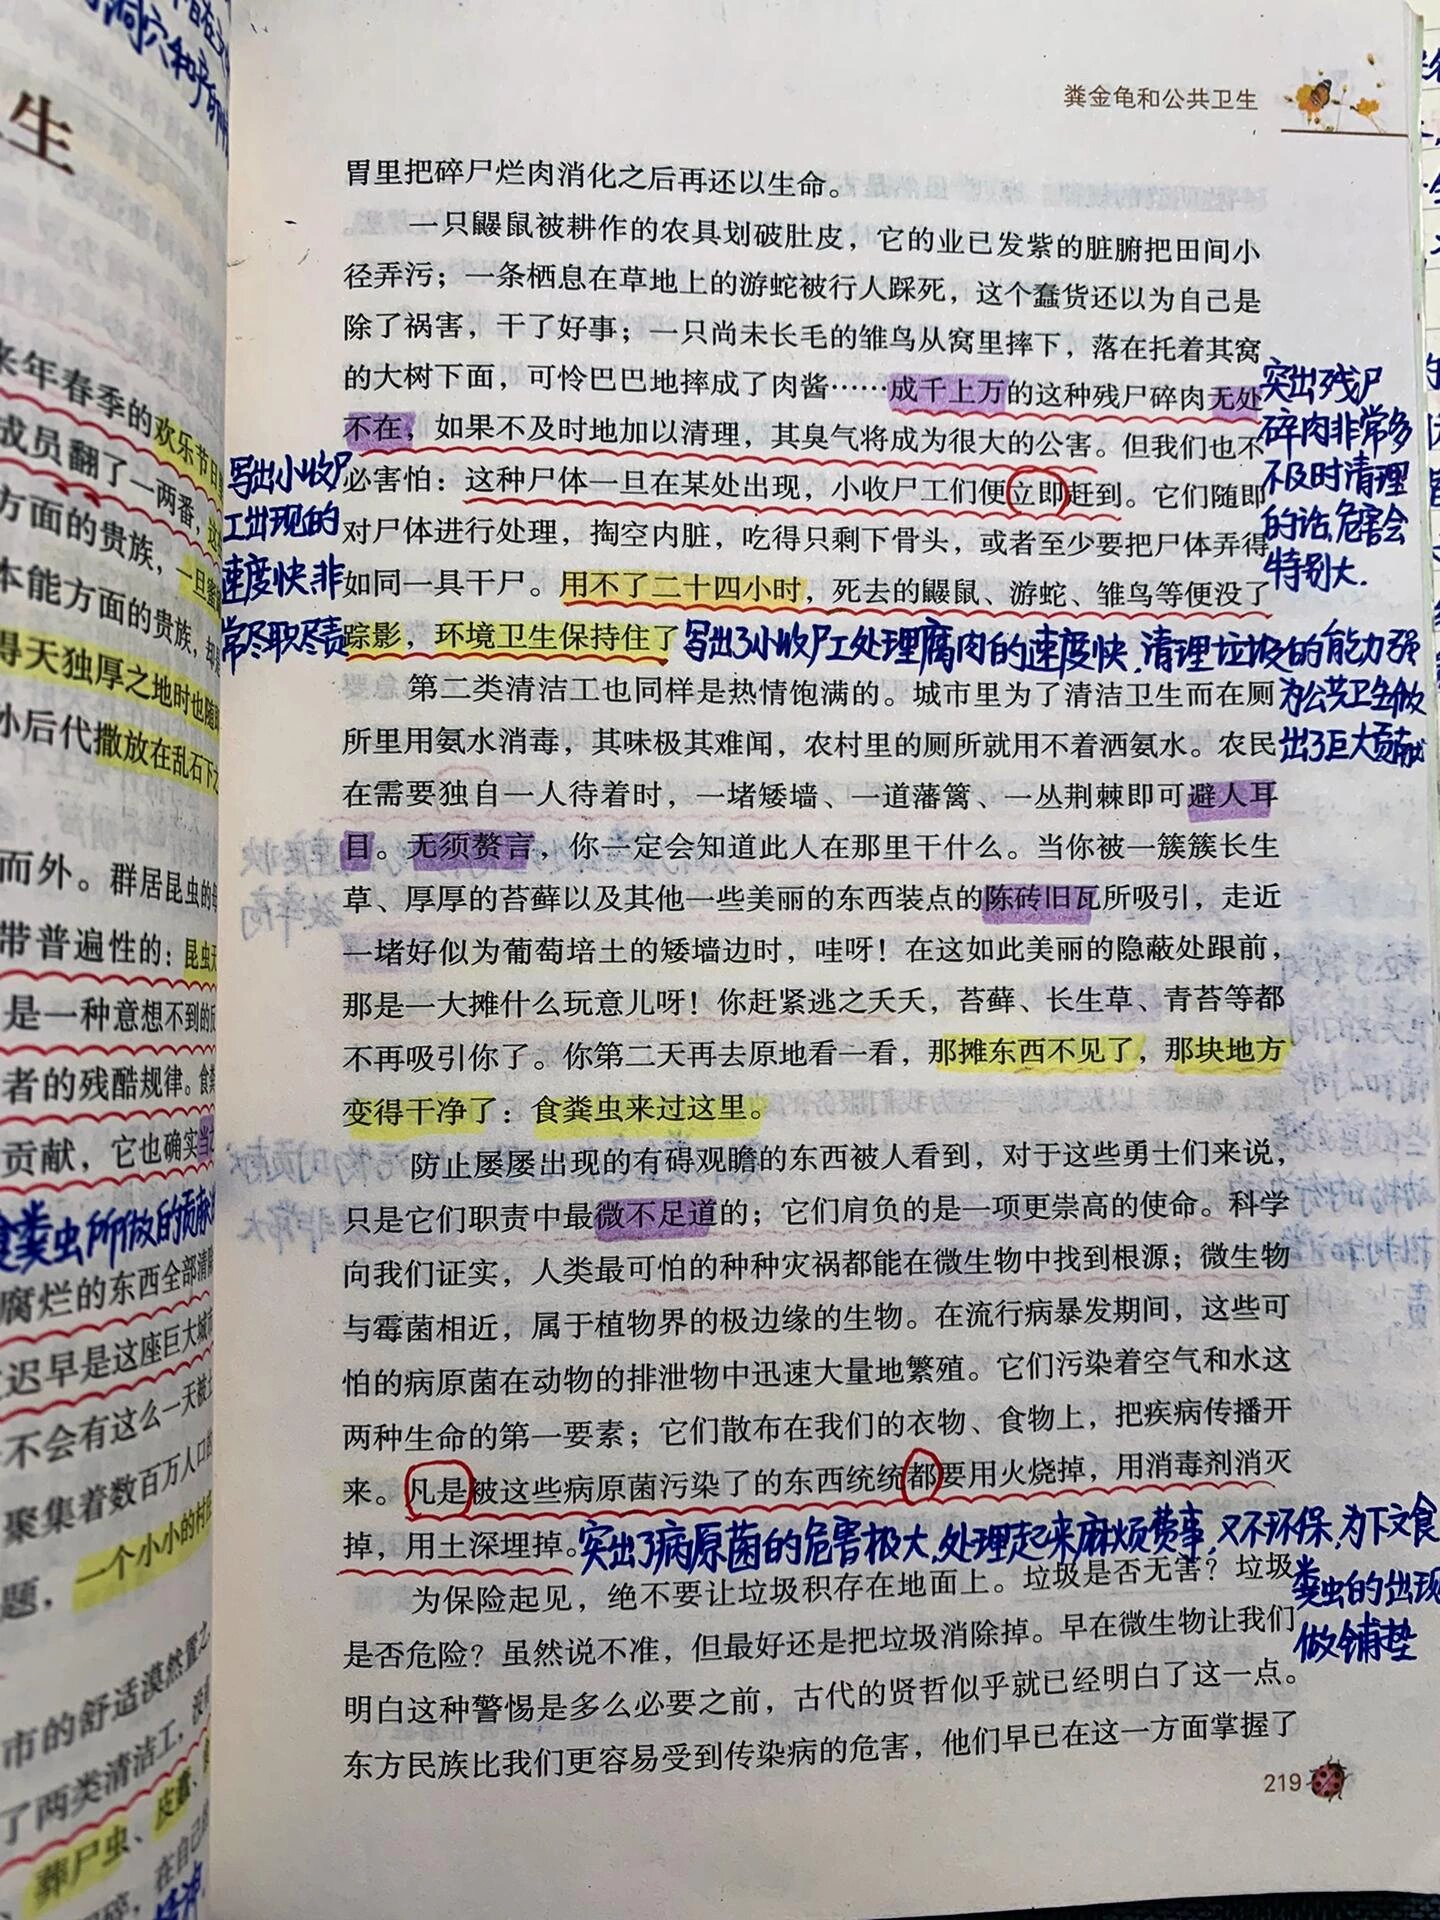 粪金龟和公共卫生
胃里把碎尸烂肉消化之后再还以生命。
一只鼹鼠被耕作的农具划破肚皮，它的业已发紫的脏腑把田间小
径弄污；一条栖息在草地上的游蛇被行人踩死，这个蠢货还以为自己是
除了祸害，干了好事；一只尚未长毛的雏鸟从窝里摔下，落在托着其窝
的大树下面，可怜巴巴地摔成了肉酱……成千上万的这种残尸碎肉无处
不在，如果不及时地加以清理，其臭气将成为很大的公害。但我们也不
必害怕：这种尸体一旦在某处出现，小收尸工们便立即赶到。它们随即
对尸体进行处理，掏空内脏，吃得只剩下骨头，或者至少要把尸体弄得
如同一具干尸。用不了二十四小时，死去的鼹鼠、游蛇、雏鸟等便没了
踪影，环境卫生保持住了
突出残尸
碎肉非常多
不及时清理
的话，危害会
特别大.
写出小收尸
工出现的
速度快，非
常尽职尽责
写出了小收尸工处理腐肉的速度快，清理垃圾的能力强
为公共卫生做
出了巨大贡献
第二类清洁工也同样是热情饱满的。城市里为了清洁卫生而在厕
所里用氨水消毒，其味极其难闻，农村里的厕所就用不着洒氨水。农民
在需要独自一人待着时，一堵矮墙、一道藩篱、一丛荆棘即可避人耳
目。无须赘言，你一定会知道此人在那里干什么。当你被一簇簇长生
草、厚厚的苔藓以及其他一些美丽的东西装点的陈砖旧瓦所吸引，走近
一堵好似为葡萄培土的矮墙边时，哇呀！在这如此美丽的隐蔽处跟前，
那是一大摊什么玩意儿呀！你赶紧逃之夭夭，苔藓、长生草、青苔等都
不再吸引你了。你第二天再去原地看一看，那摊东西不见了，那块地方
变得干净了：食粪虫来过这里。
防止屡屡出现的有碍观瞻的东西被人看到，对于这些勇士们来说，
只是它们职责中最微不足道的；它们肩负的是一项更崇高的使命。科学
向我们证实，人类最可怕的种种灾祸都能在微生物中找到根源；微生物
与霉菌相近，属于植物界的极边缘的生物。在流行病暴发期间，这些可
怕的病原菌在动物的排泄物中迅速大量地繁殖。它们污染着空气和水这
两种生命的第一要素；它们散布在我们的衣物、食物上，把疾病传播开
来。凡是被这些病原菌污染了的东西统统都要用火烧掉，用消毒剂消灭
掉，用土深埋掉。
突出了病原菌的危害极大，处理起来麻烦费事，又不环保，为下文食
粪虫的出现
做铺垫
为保险起见，绝不要让垃圾积存在地面上。垃圾是否无害？垃圾
是否危险？虽然说不准，但最好还是把垃圾消除掉。早在微生物让我们
明白这种警惕是多么必要之前，古代的贤哲似乎就已经明白了这一点。
东方民族比我们更容易受到传染病的危害，他们早已在这一方面掌握了
219
生
来年春季的欢乐节日
成员翻了一两番，这
方面的贵族，一旦蜜
本能方面的贵族，却
得天独厚之地时也随
孙后代撒放在乱石下
而外。群居昆虫的母
带普遍性的：昆虫无
是一种意想不到的反
者的残酷规律。食粪
贡献，它也确实当之
食粪虫所做的贡献
腐烂的东西全部清除
迟早是这座巨大城市
不会有这么一天被
聚集着数百万人口的
题，一个小小的村庄
市的舒适漠然置之
了两类清洁工，没有
葬尸虫、皮蠹、